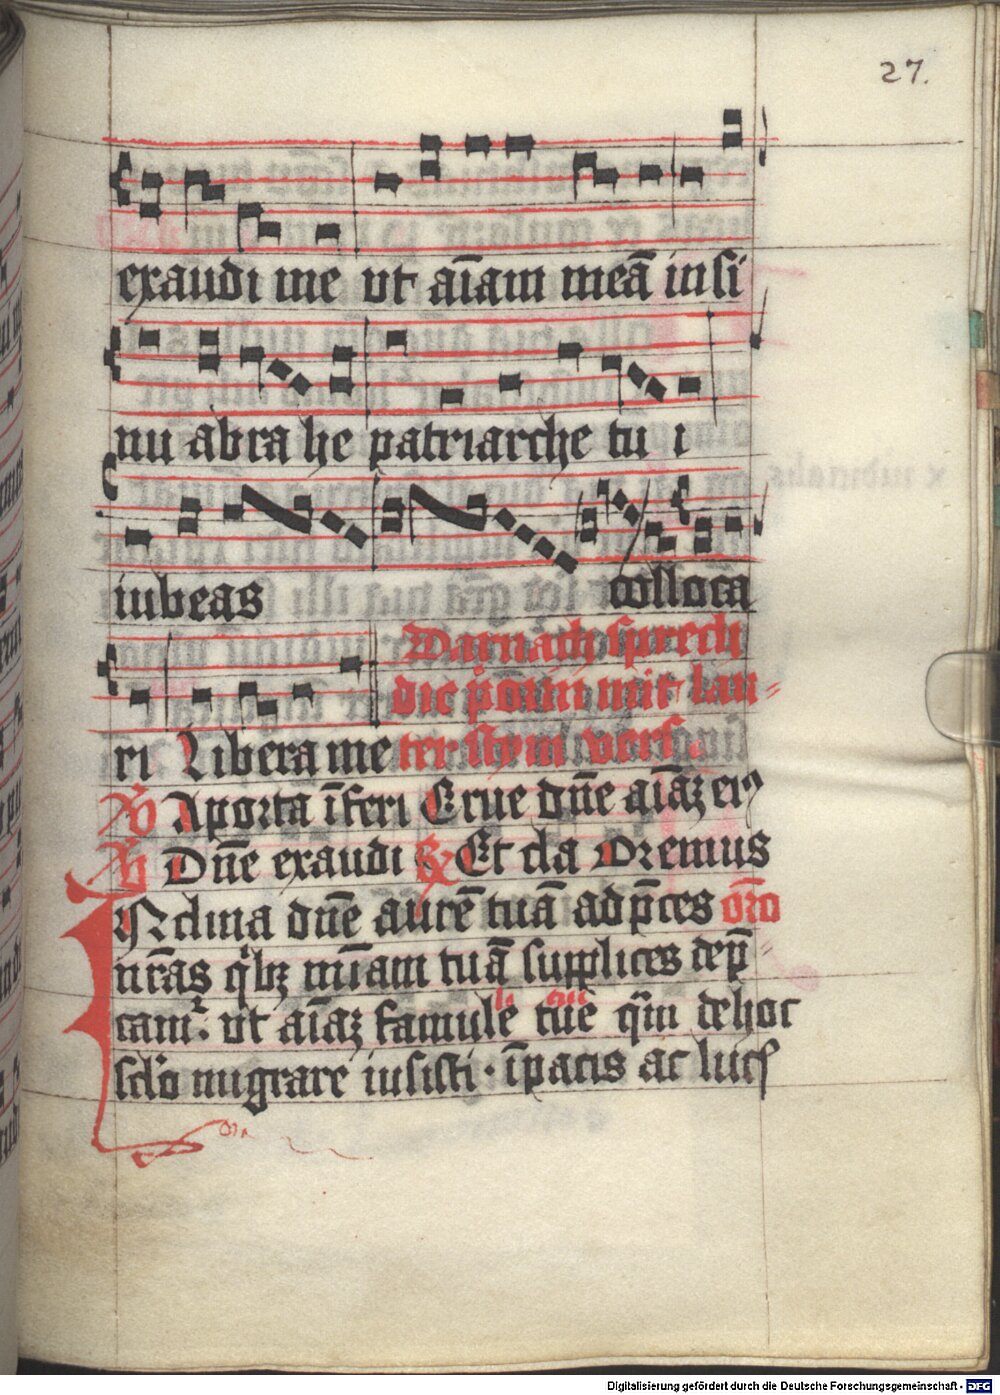 27.
exaudi me ut aīam meā in si
nu abra he patriarche tu i
iubeas colloca
ri Libera me
Darnach sprech
die p̄ōnn mit lau⸗
ter stym vers.
V̷ A porta īferi Erue dn̄e aīaꝫ eiꝰ
V̷ Dn̄e exaudi R̷ Et cla Oremus
INclina dn̄e aurē tuā ad p̄ces oro
nrās q̓bꝫ mīam tuā supplices dep̄
cam᷒. ut aīaꝫ famule tue q̄m de hoc
sclo migrare iusisti · ī pacis ac lucꝭ
li cui
Digitalisierung gefördert durch die Deutsche Forschungsgemeinschaft - DFG